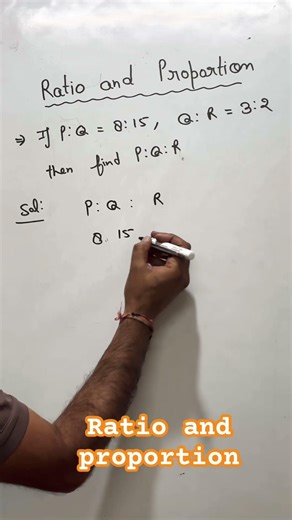 Ratio and Proportion
⇒ If P:Q = 8:15, Q:R = 3:2
then find P:Q:R
Sol: P : Q : R
8 15
Ratio and
proportion